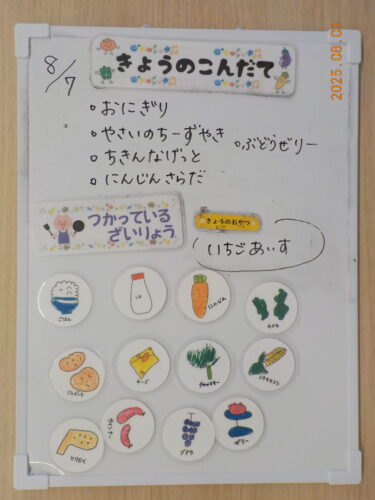 8/7
きょうのこんだて
2025.08.07
。おにぎり
。やさいのちーずやき 。ぶどうぜりー
。ちきんなげっと
。にんじんさらだ
つかっている
ざいりょう
きょうのおやつ
いちごあいす
ごはん
しお
にんじん
わかめ
じゃがいも
チーズ
ブロッコリー
トウモロコシ
とりにく
ウインナー
ブドウ
ゼリー